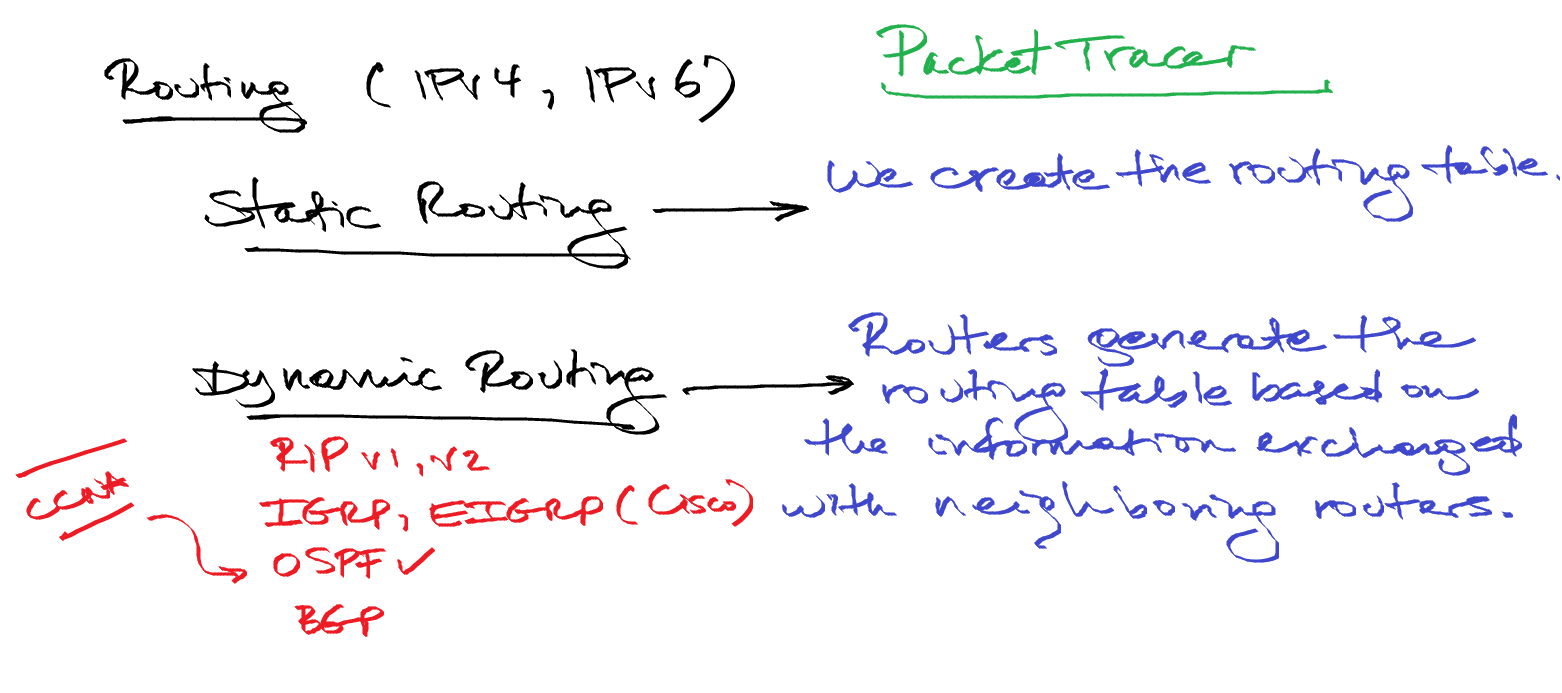 Routing (IPv4, IPv6)
Packet Tracer
Static Routing
We create the routing table.
Dynamic Routing
Routers generate the
routing table based on
the information exchanged
with neighboring routers.
RIP v1, v2
IGRP, EIGRP (Cisco)
CCNA
OSPF ✓
BGP